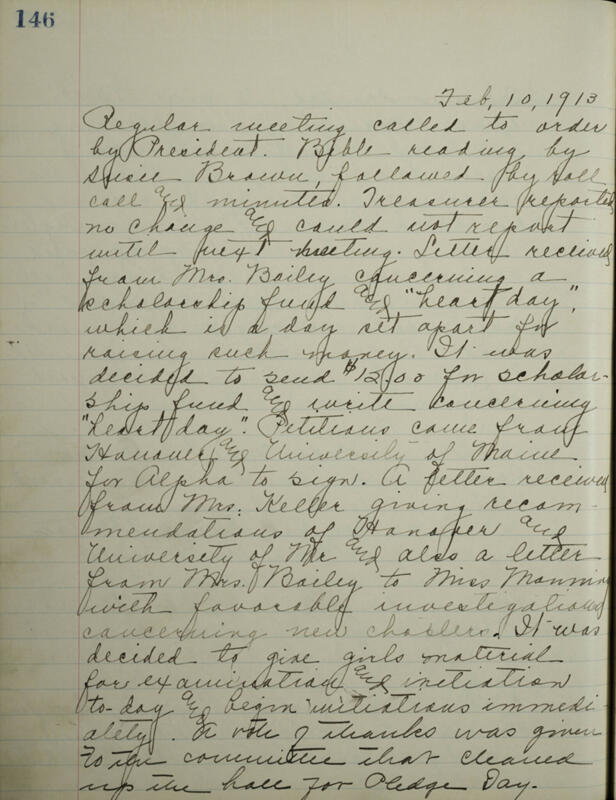 146
Feb, 10, 1913
Regular meeting called to order
by President. Bible reading by
Susie Brown, followed by roll
call and minutes. Treasurer reported
no change and could not report
until next meeting. Letter received
from Mrs. Bailey concerning a
scholarship fund and "heart day",
which is a day set apart for
raising such money. It was
decided to send $12.00 for scholar-
ship fund and write concerning
"heart day". Petitions came from
Hanover and University of Maine
for Alpha to sign. A letter received
from Mrs. Keller giving recom-
mendations of Hanover and
University of Me and also a letter
from Mrs. Bailey to Miss Manning
with favorable investigations
concerning new chapters. It was
decided to give girls material
for examination and initiation
to-day and begin initiations immedi-
ately. A vote of thanks was given
to the committee that cleaned
up the hall for Pledge Day.